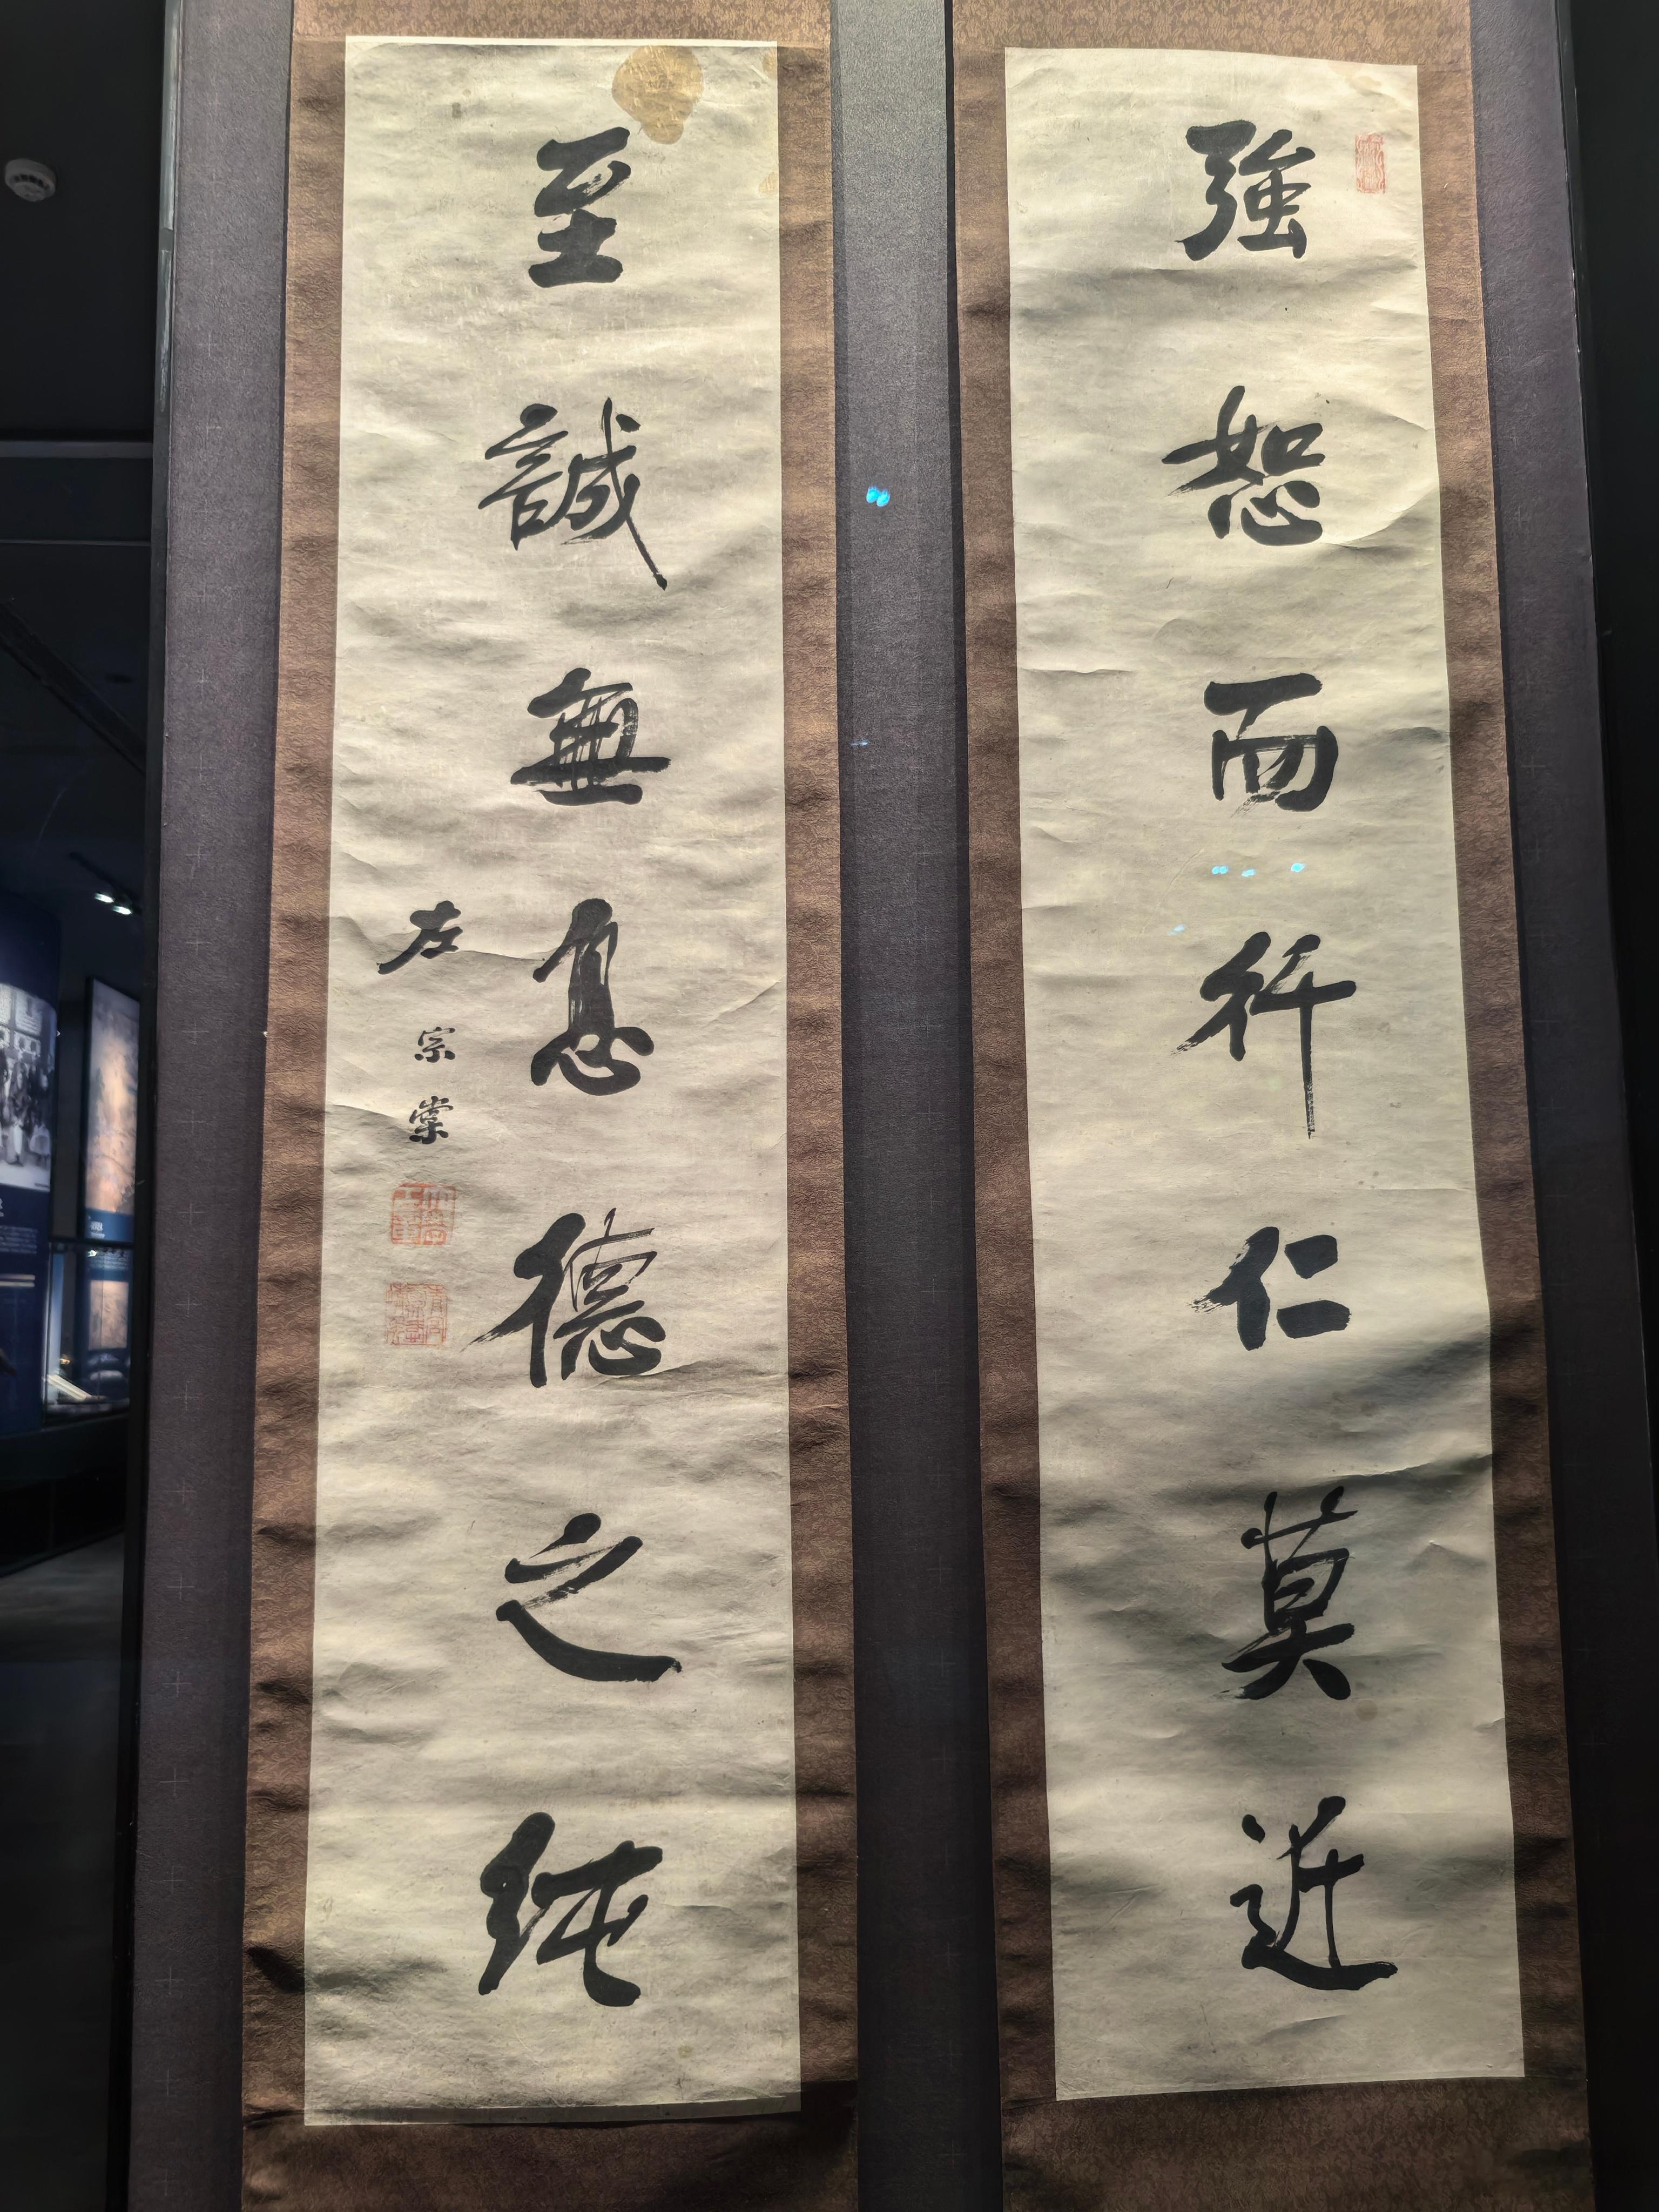 強恕而行仁莫近
至誠無息德之純
左宗棠